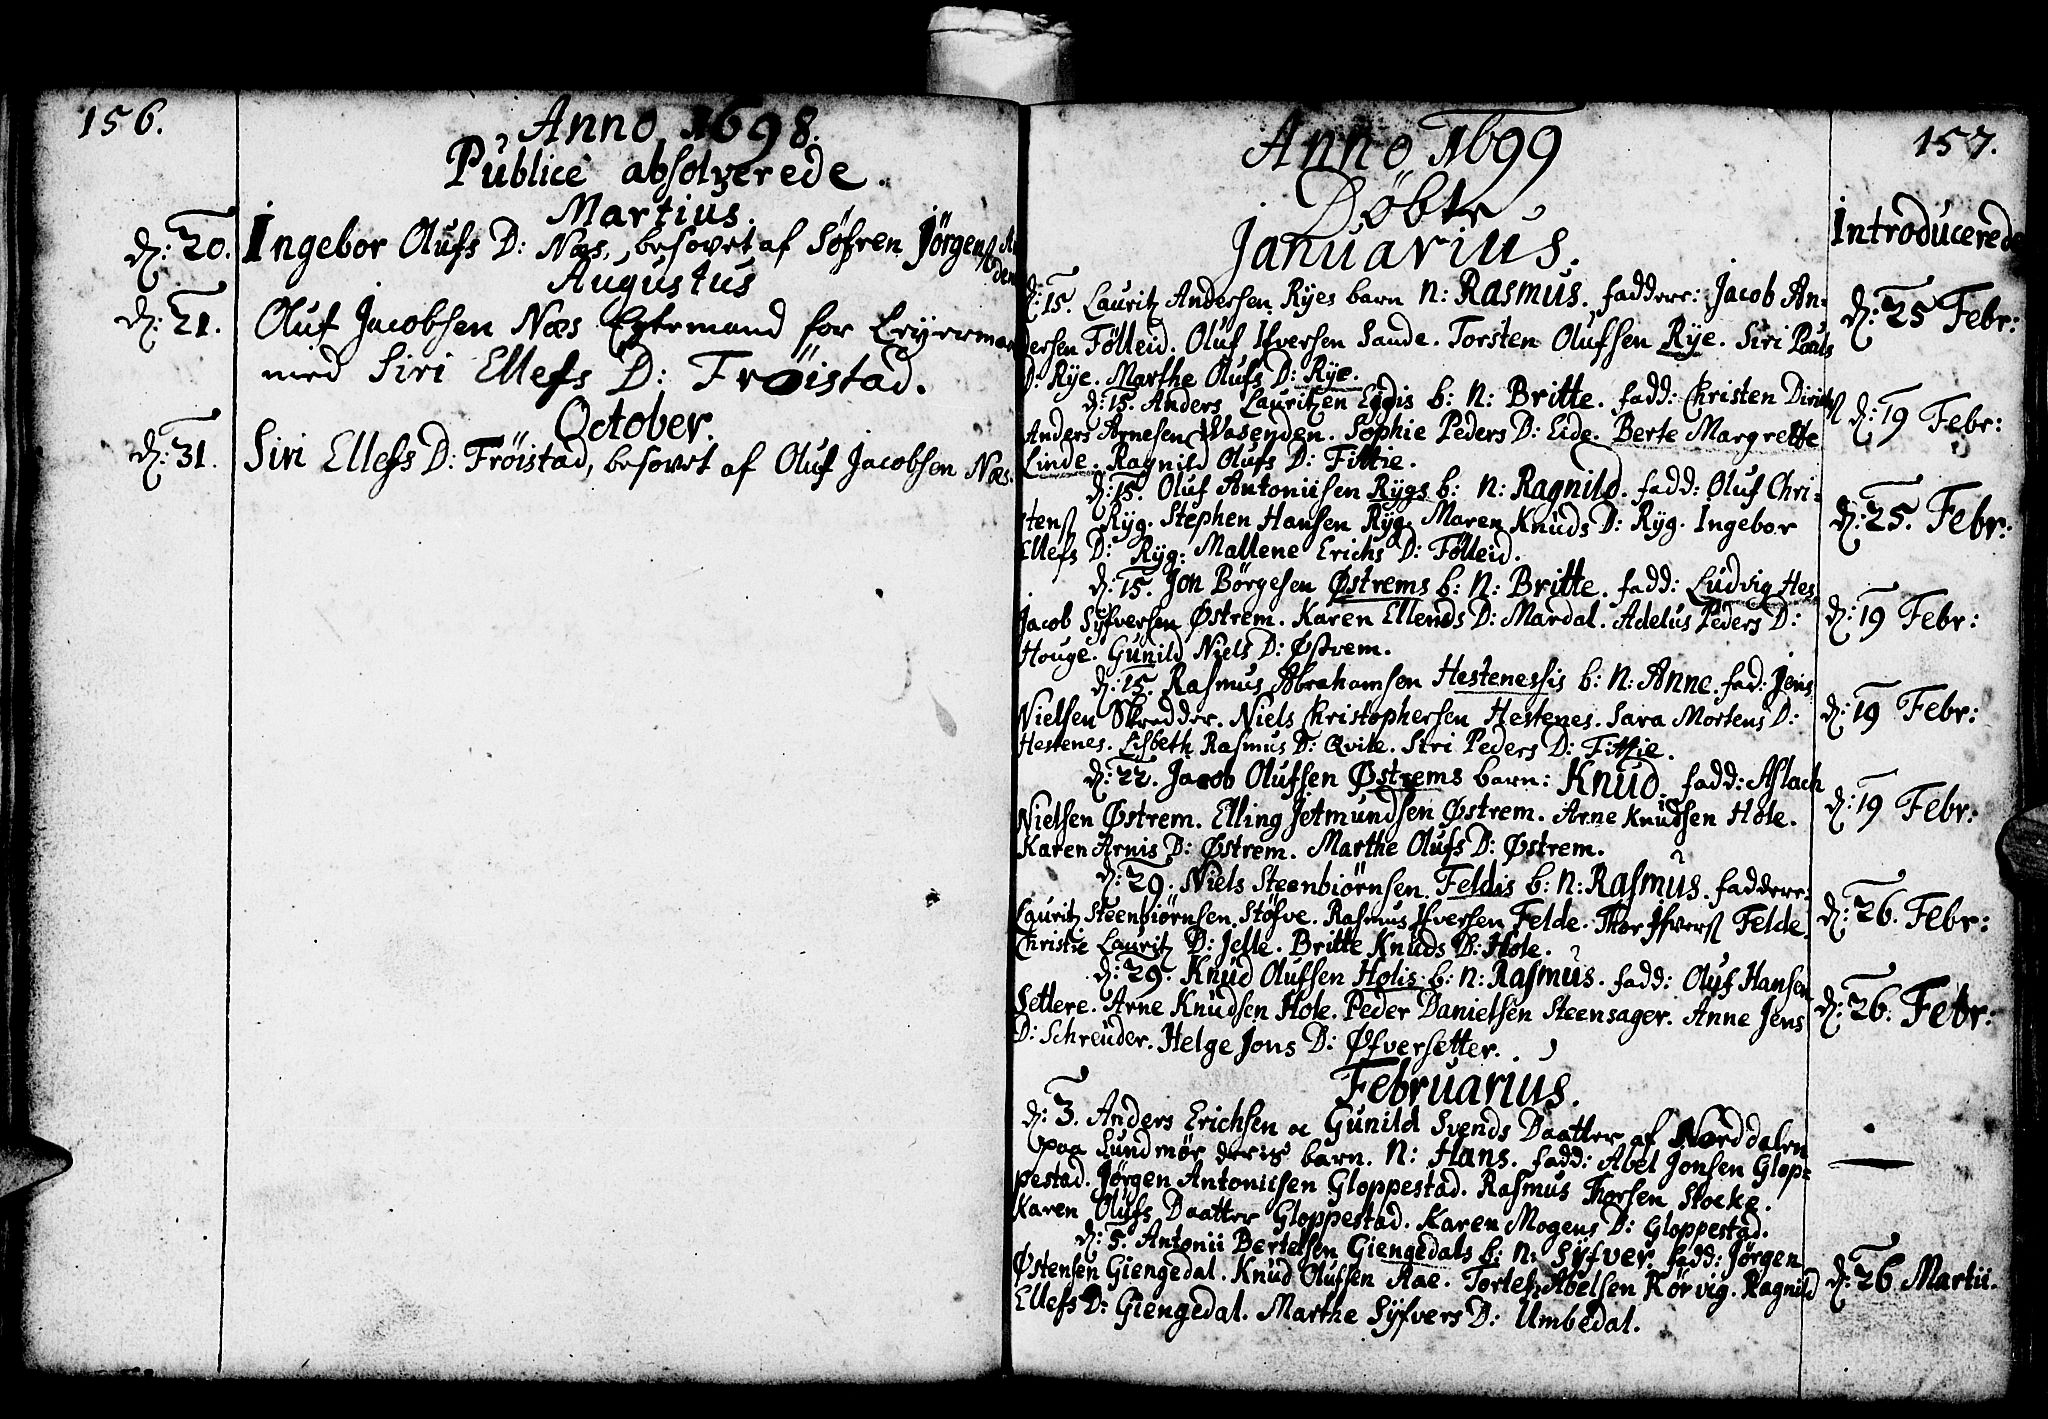 156.
Anno 1698.
Publicè absolverede.
Martius.
d: 20. Ingebor Olufs D: Næs, besovet af Söfren Jörgenß
Augustus
d: 21. Oluf Jacobsen Næs Egtemand for Leyermaal
med Siri Ellefs D: Frøistad.
October.
d: 31. Siri Ellefs D: Fröistad, besovet af Oluf Jacobsen Næs.
157.
Anno 1699
Döbte
Introducerede
Januarius.
d: 15. Lauritz Andersen Ryes barn N: Rasmus. faddere: Jacob An- d: 25 Febr:
dersen Fölleid. Oluf Ifversen Sande. Torsten Olufsen Rÿe. Siri Pouls
D: Rÿe. Marthe Olufs D: Rÿe.
d: 15. Anders Lauritzen Eydis b: N: Britte. fadd: Christen Dirichß d: 19 Febr:
Anders Arnesen Wasenden. Sophie Peders D: Eide. Berte Margrette
Linde. Ragnild Olufs D: Fittie.
d: 15. Oluf Antoniisen Rÿgs b: N: Ragnild. fadd: Oluf Chri- d: 25. Febr:
stenß Rÿg. Stephen Hansen Rÿg. Maren Knuds D: Rÿg. Ingebor
Ellefs D: Rÿg. Mallene Erichs D: Fölleid.
d: 15. Jon Börgesen Østrems b: N: Britte. fadd: Ludvig Hes. d: 19 Febr:
Jacob Syfversen Østrem. Karen Ellends D: Mardal. Adelus Peders D:
Houge. Gunild Niels D: Østrem.
d: 15. Rasmus Abrahamsen Hestenessis b: N: Anne. fad: Jens d: 19 Febr:
Nielsen Skredder. Niels Christophersen Hestenes. Sara Mortens D:
Hestenes. Lisbeth Rasmus D: Qvile. Siri Peders D: Fittie.
d: 22. Jacob Olufsen Østrems barn: Knud. fadd: Aslach d: 19 Febr:
Nielsen Østrem. Elling Jetmundsen Østrem. Arne Knudsen Hole.
Karen Arnis D: Østrem. Marthe Olufs D: Østrem.
d: 29. Niels Steenbiørnsen Feldis b: N: Rasmus. faddere: d: 26. Febr:
Lauritz Steenbiørnsen Støfve. Rasmus Ifversen Felde. Thor Ifverß Felde.
Christie Lauritz D: Jelle. Britte Knuds D: Hole.
d: 29. Knud Olufsen Holis b: N: Rasmus. fadd: Oluf Hansen d: 26. Febr:
Settere. Arne Knudsen Hole. Peder Danielsen Steensager. Anne Jens
D: Schreuder. Helge Jons D: Øfversetter.
Februarius.
d: 3. Anders Erichsen oc Gunild Svends Daatter af Norddalen
paa Sundmør deris barn. N: Hans. fadd: Abel Jonsen Glop-
pestad. Jørgen Antoniisen Gloppestad. Rasmus Thorsen Stocke.
Karen Olufs Daatter Gloppestad. Karen Mogens D: Gloppestad.
d: 5. Antonii Bertelsen Giengedals b: N: Syfver. fadd: Jørgen d: 26 Martii.
Østensen Giengedal. Knud Olufsen Aae. Torlef Abelsen Rørvig. Ragnild
Ellefs D: Giengedal. Marthe Syfvers D: Umbedal.